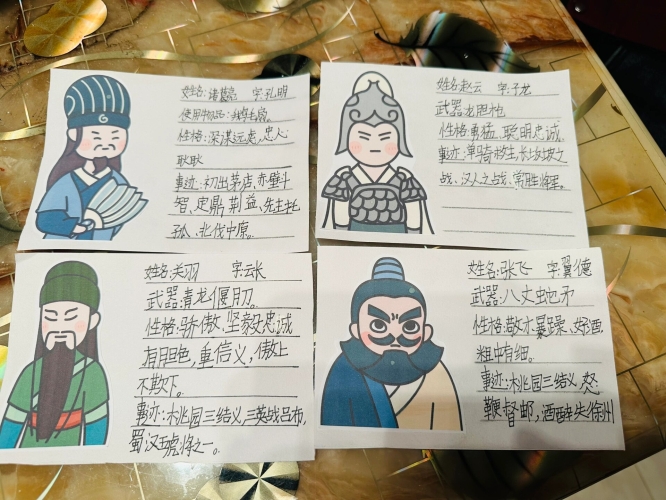 姓名:诸葛亮 字:孔明
使用物品:鹅毛扇。
性格:深谋远虑,忠心
耿耿
事迹:初出茅店,赤壁斗
智、定鼎荆益、先主托
孤、北伐中原。
姓名赵云 字:子龙
武器龙胆枪
性格:勇猛、聪明忠诚。
事迹:单骑救主,长坂坡之
战、汉人之战、常胜将军。
姓名:关羽 字云长
武器:青龙偃月刀。
性格:骄傲、坚毅忠诚
有胆色,重信义,傲上
不欺下。
事迹:桃园三结义,三英战吕布,
蜀汉五虎将之一。
姓名:张飞 字翼德
武器:八丈蛇矛
性格:豪爽、暴躁、好酒,
粗中有细。
事迹:桃园三结义,怒
鞭督邮,酒醉失徐州